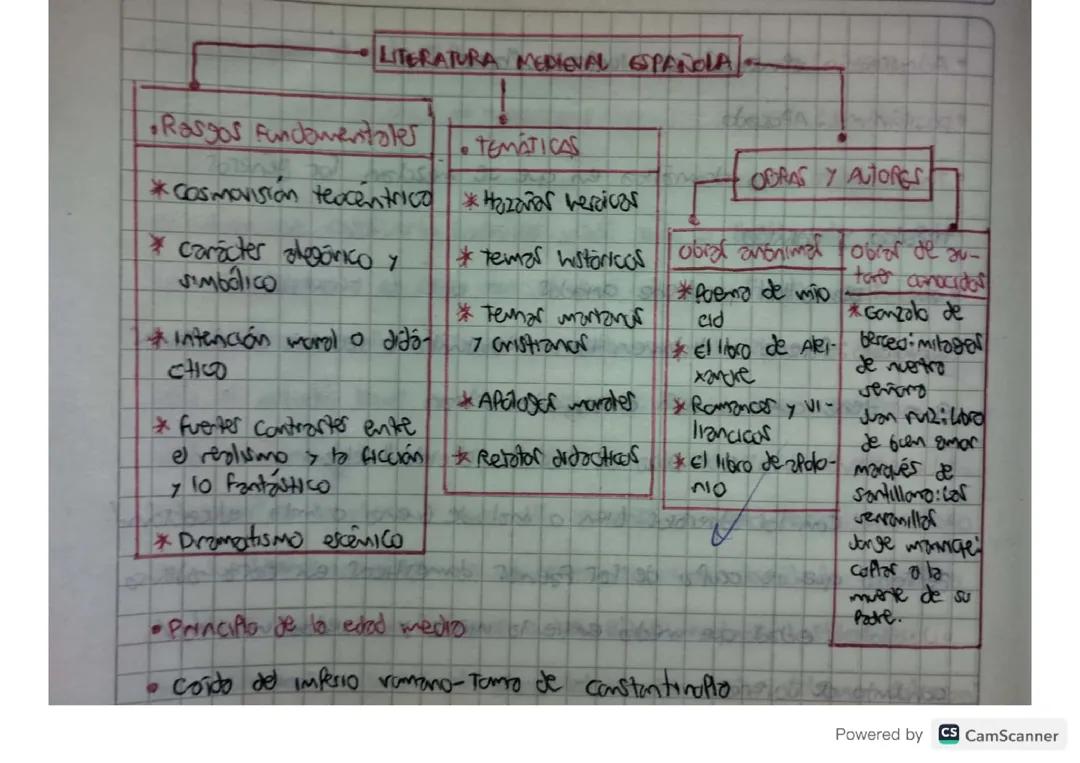 LITERATURA MEDIEVAL ESPAÑOLA
• Rasgos Fundamentales
* cosmovisión teocéntrico
* carácter alegórico y
simbólico
* Intención moral o didá-
ctico
* fuertes contrastes ente
el realismo y la ficción
y lo fantástico
* Dramatismo escénico
• TEMÁTICAS
* Hazañas heroicas
* temas históricos
* Temas marianos
y cristianos
* Apólogos morales
* Relatos didacticos
OBRAS Y AUTORES
Obras anónimas
* Poema de mio
cid
* El libro de Alei-
xandre
* Romances y vi-
llancicos
* El libro de apolo-
nio
Obras de au-
tores conocidos
* Gonzalo de
berceo: milagros
de nuestra
señora
Juan ruiz: Libro
de buen amor
marqués de
santillana: las
serranillas
Jorge manrique:
coplas a la
muerte de su
Padre.
• Principio de la edad media
• Caída del imperio romano - Toma de constantinopla
Powered by CS CamScanner